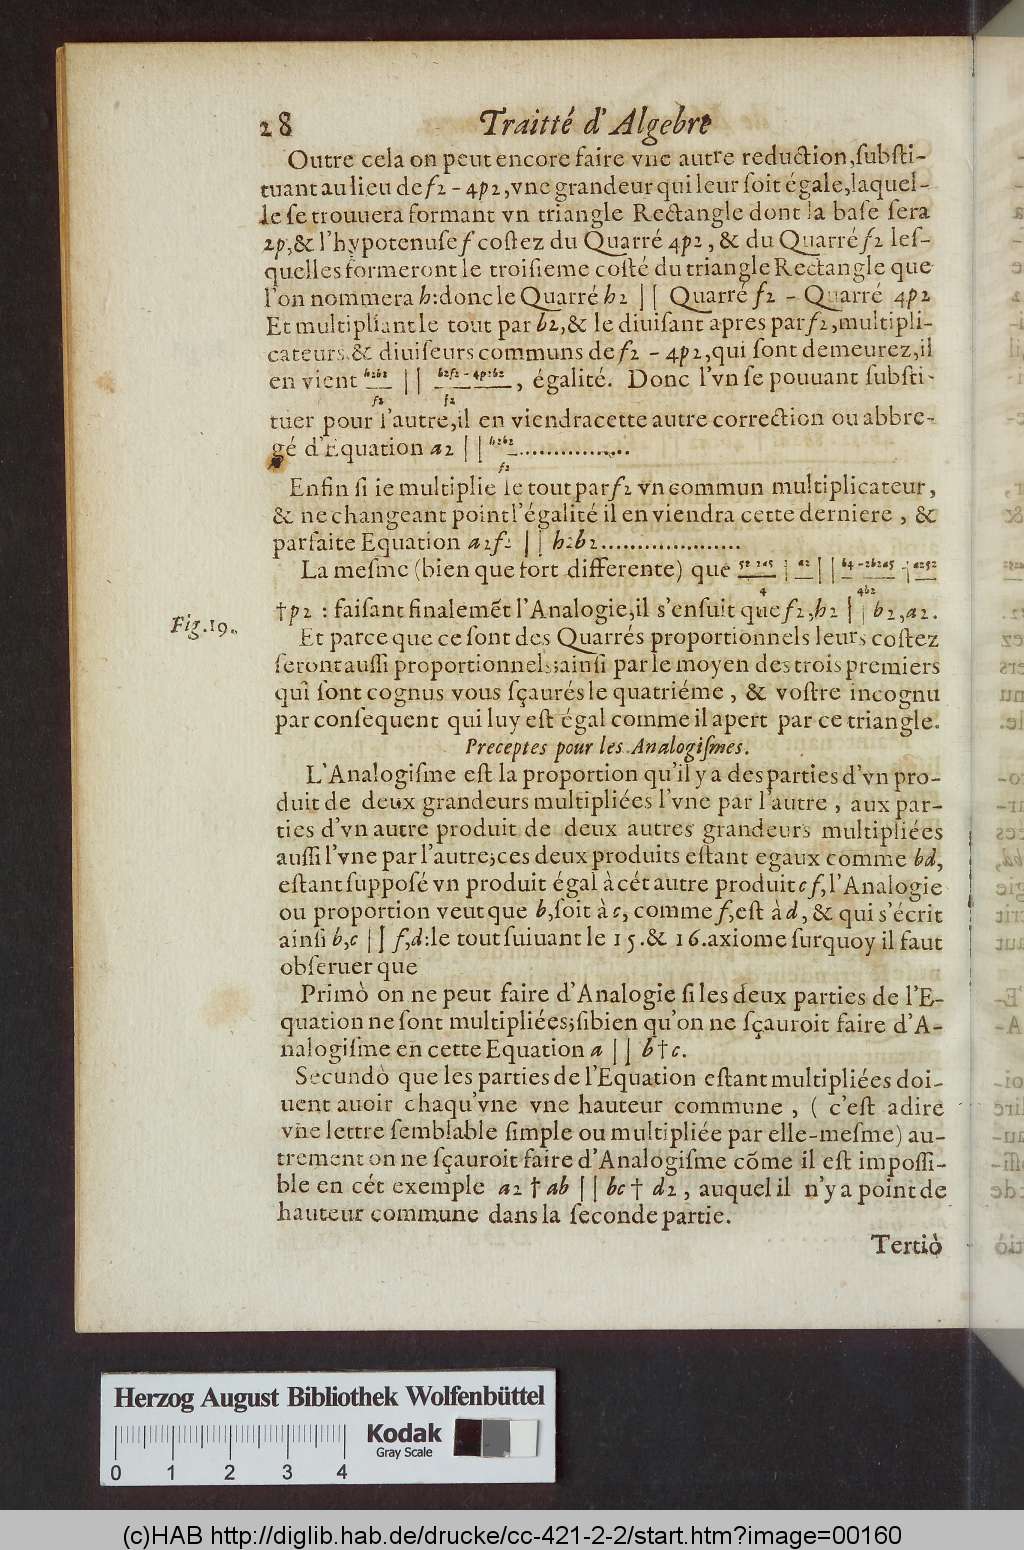 28 Traitté d'Algebre
Outre cela on peut encore faire vne autre reduction,ſubſti-
tuant au lieu de f2 - 4p2,vne grandeur qui leur ſoit égale,laquel-
le ſe trouuera formant vn triangle Rectangle dont la baſe ſera
2p,& l'hypotenuſe f coſtez du Quarré 4p2, & du Quarré f2 leſ-
quelles formeront le troiſieme coſté du triangle Rectangle que
l'on nommera h:donc le Quarré h2 || Quarré f2 - Quarré 4p2
Et multipliant le tout par b2,& le diuiſant apres par f2,multipli-
cateurs & diuiſeurs communs de f2 - 4p2,qui ſont demeurez,il
en vient h2b2/f2 || b2f2 - 4p2b2/f2, égalité. Donc l'vn ſe pouuant ſubſti-
tuer pour l'autre,il en viendra cette autre correction ou abbre-
gé d'Equation a2 || h2b2/f2................
Enfin ſi ie multiplie le tout par f2 vn commun multiplicateur,
& ne changeant point l'égalité il en viendra cette derniere, &
parfaite Equation a2f2 || h2b2....................
La meſme (bien que fort differente) que
†p2 : faiſant finalemẽt l'Analogie,il s'enſuit que f2,h2 || b2,a2.
Fig.19.
Et parce que ce ſont des Quarrés proportionnels leurs coſtez
ſeront auſſi proportionnels;ainſi par le moyen des trois premiers
qui ſont cognus vous ſçaurés le quatriéme, & voſtre incognu
par conſequent qui luy eſt égal comme il apert par ce triangle.
Preceptes pour les Analogiſmes.
L'Analogiſme eſt la proportion qu'il y a des parties d'vn pro-
duit de deux grandeurs multipliées l'vne par l'autre, aux par-
ties d'vn autre produit de deux autres grandeurs multipliées
auſſi l'vne par l'autre;ces deux produits eſtant egaux comme bd,
eſtant ſuppoſé vn produit égal à cét autre produit cf,l'Analogie
ou proportion veut que b,ſoit à c, comme f,eſt à d, & qui s'écrit
ainſi b,c || f,d:le tout ſuiuant le 15.& 16.axiome ſurquoy il faut
obſeruer que
Primò on ne peut faire d'Analogie ſi les deux parties de l'E-
quation ne ſont multipliées;ſibien qu'on ne ſçauroit faire d'A-
nalogiſme en cette Equation a || b†c.
Secundò que les parties de l'Equation eſtant multipliées doi-
uent auoir chaqu'vne vne hauteur commune, ( c'eſt adire
vne lettre ſemblable ſimple ou multipliée par elle-meſme) au-
trement on ne ſçauroit faire d'Analogiſme cõme il eſt impoſſi-
ble en cét exemple a2 † ab || bc † d2, auquel il n'y a point de
hauteur commune dans la ſeconde partie.
Tertiò
Herzog August Bibliothek Wolfenbüttel
Kodak
Gray Scale
0 1 2 3 4
(c)HAB http://diglib.hab.de/drucke/cc-421-2-2/start.htm?image=00160